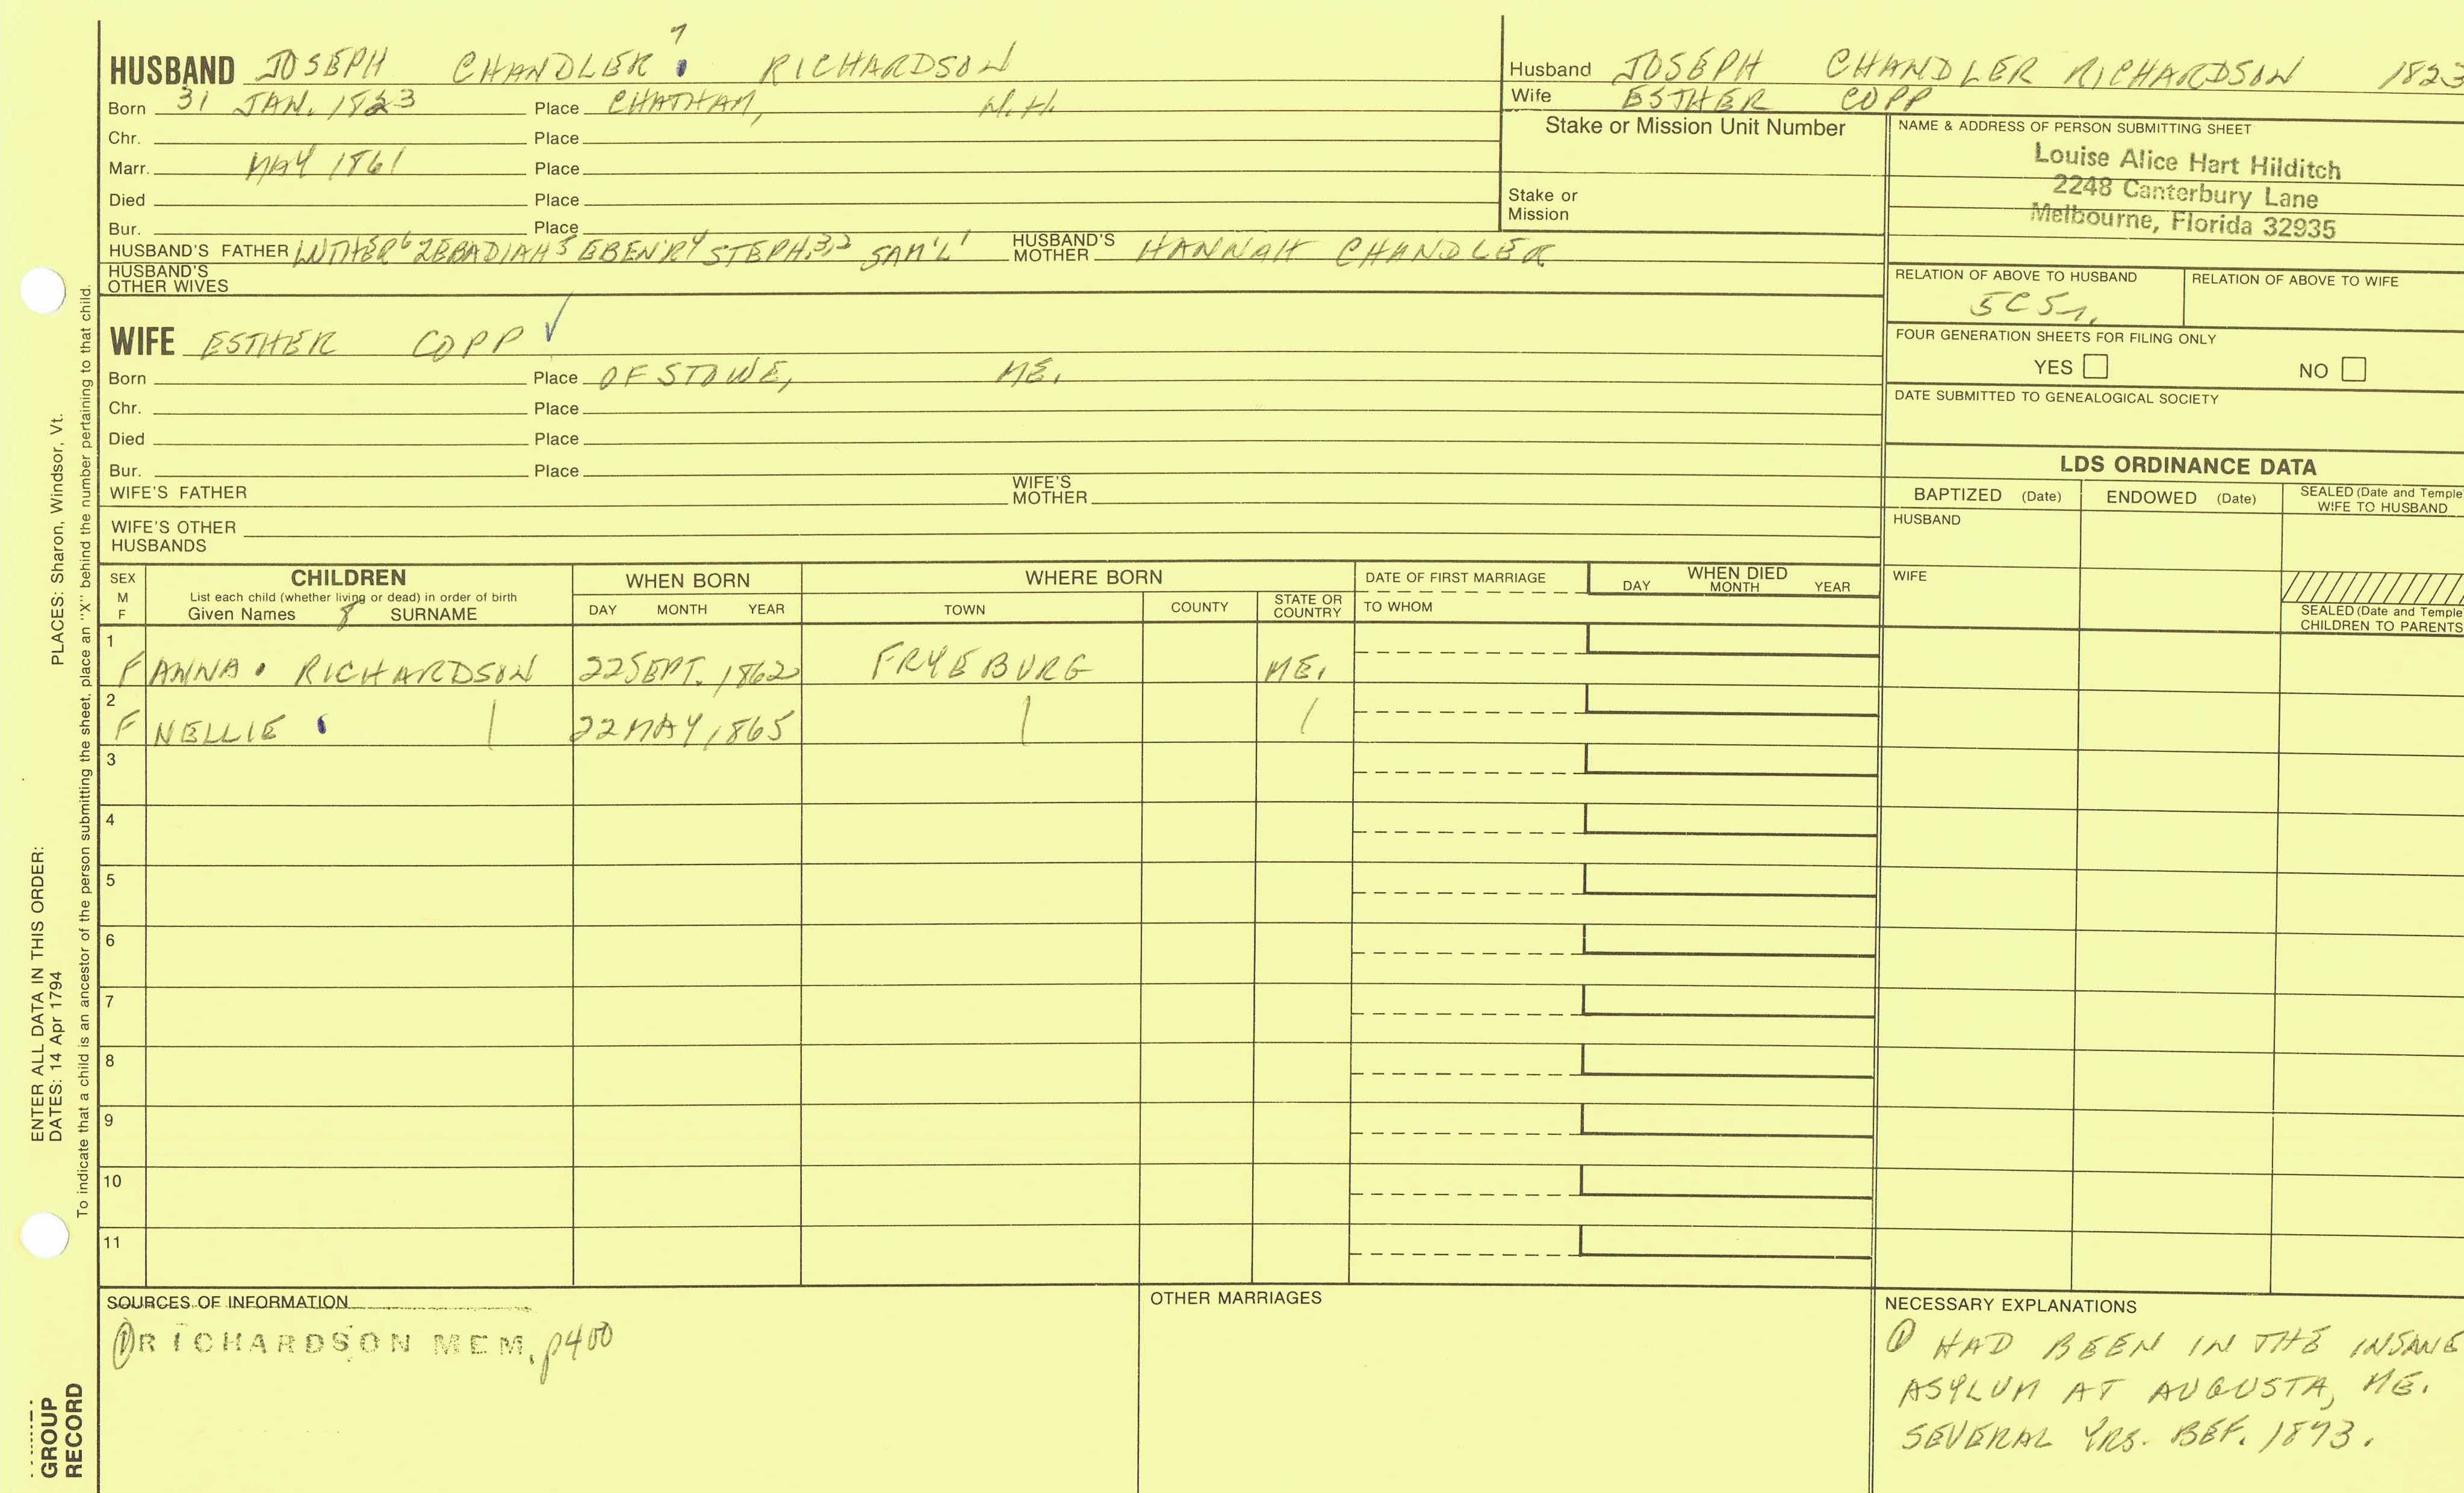 HUSBAND JOSEPH CHANDLER 7 RICHARDSON
Born 31 JAN. 1823 Place CHATHAM, N.H.
Chr. Place
Marr. MAY 1861 Place
Died Place
Bur. Place
HUSBAND'S FATHER LUTHER 6 ZEBADIAH 5 EBEN'R 4 STEPH. 3,2 SAM'L 1 HUSBAND'S MOTHER HANNAH CHANDLER
HUSBAND'S OTHER WIVES
WIFE ESTHER COPP ✓
Born Place OF STOWE, ME.
Chr. Place
Died Place
Bur. Place
WIFE'S FATHER WIFE'S MOTHER
WIFE'S OTHER HUSBANDS
Husband JOSEPH CHANDLER RICHARDSON 1823
Wife ESTHER COPP
Stake or Mission Unit Number
Stake or Mission
NAME & ADDRESS OF PERSON SUBMITTING SHEET
Louise Alice Hart Hilditch
2248 Canterbury Lane
Melbourne, Florida 32935
RELATION OF ABOVE TO HUSBAND RELATION OF ABOVE TO WIFE
FOUR GENERATION SHEETS FOR FILING ONLY
YES NO
DATE SUBMITTED TO GENEALOGICAL SOCIETY
LDS ORDINANCE DATA
BAPTIZED (Date) ENDOWED (Date) SEALED (Date and Temple
WIFE TO HUSBAND
HUSBAND
WIFE
SEALED (Date and Temple
CHILDREN TO PARENTS
SEX M F CHILDREN WHEN BORN WHERE BORN DATE OF FIRST MARRIAGE WHEN DIED
List each child (whether living or dead) in order of birth
Given Names 8 SURNAME DAY MONTH YEAR TOWN COUNTY STATE OR COUNTRY TO WHOM DAY MONTH YEAR
1 F ANNA RICHARDSON 22 SEPT. 1862 FRYEBURG ME.
2 F NELLIE | 22 MAY, 1865 | /
3
4
5
6
7
8
9
10
11
SOURCES OF INFORMATION
① RICHARDSON MEM. p400
OTHER MARRIAGES
NECESSARY EXPLANATIONS
① HAD BEEN IN THE INSANE
ASYLUM AT AUGUSTA, ME.
SEVERAL YRS. BEF. 1873.
ENTER ALL DATA IN THIS ORDER:
DATES: 14 Apr 1794 PLACES: Sharon, Windsor, Vt.
To indicate that a child is an ancestor of the person submitting the sheet, place an "X" behind the number pertaining to that child.
GROUP
RECORD